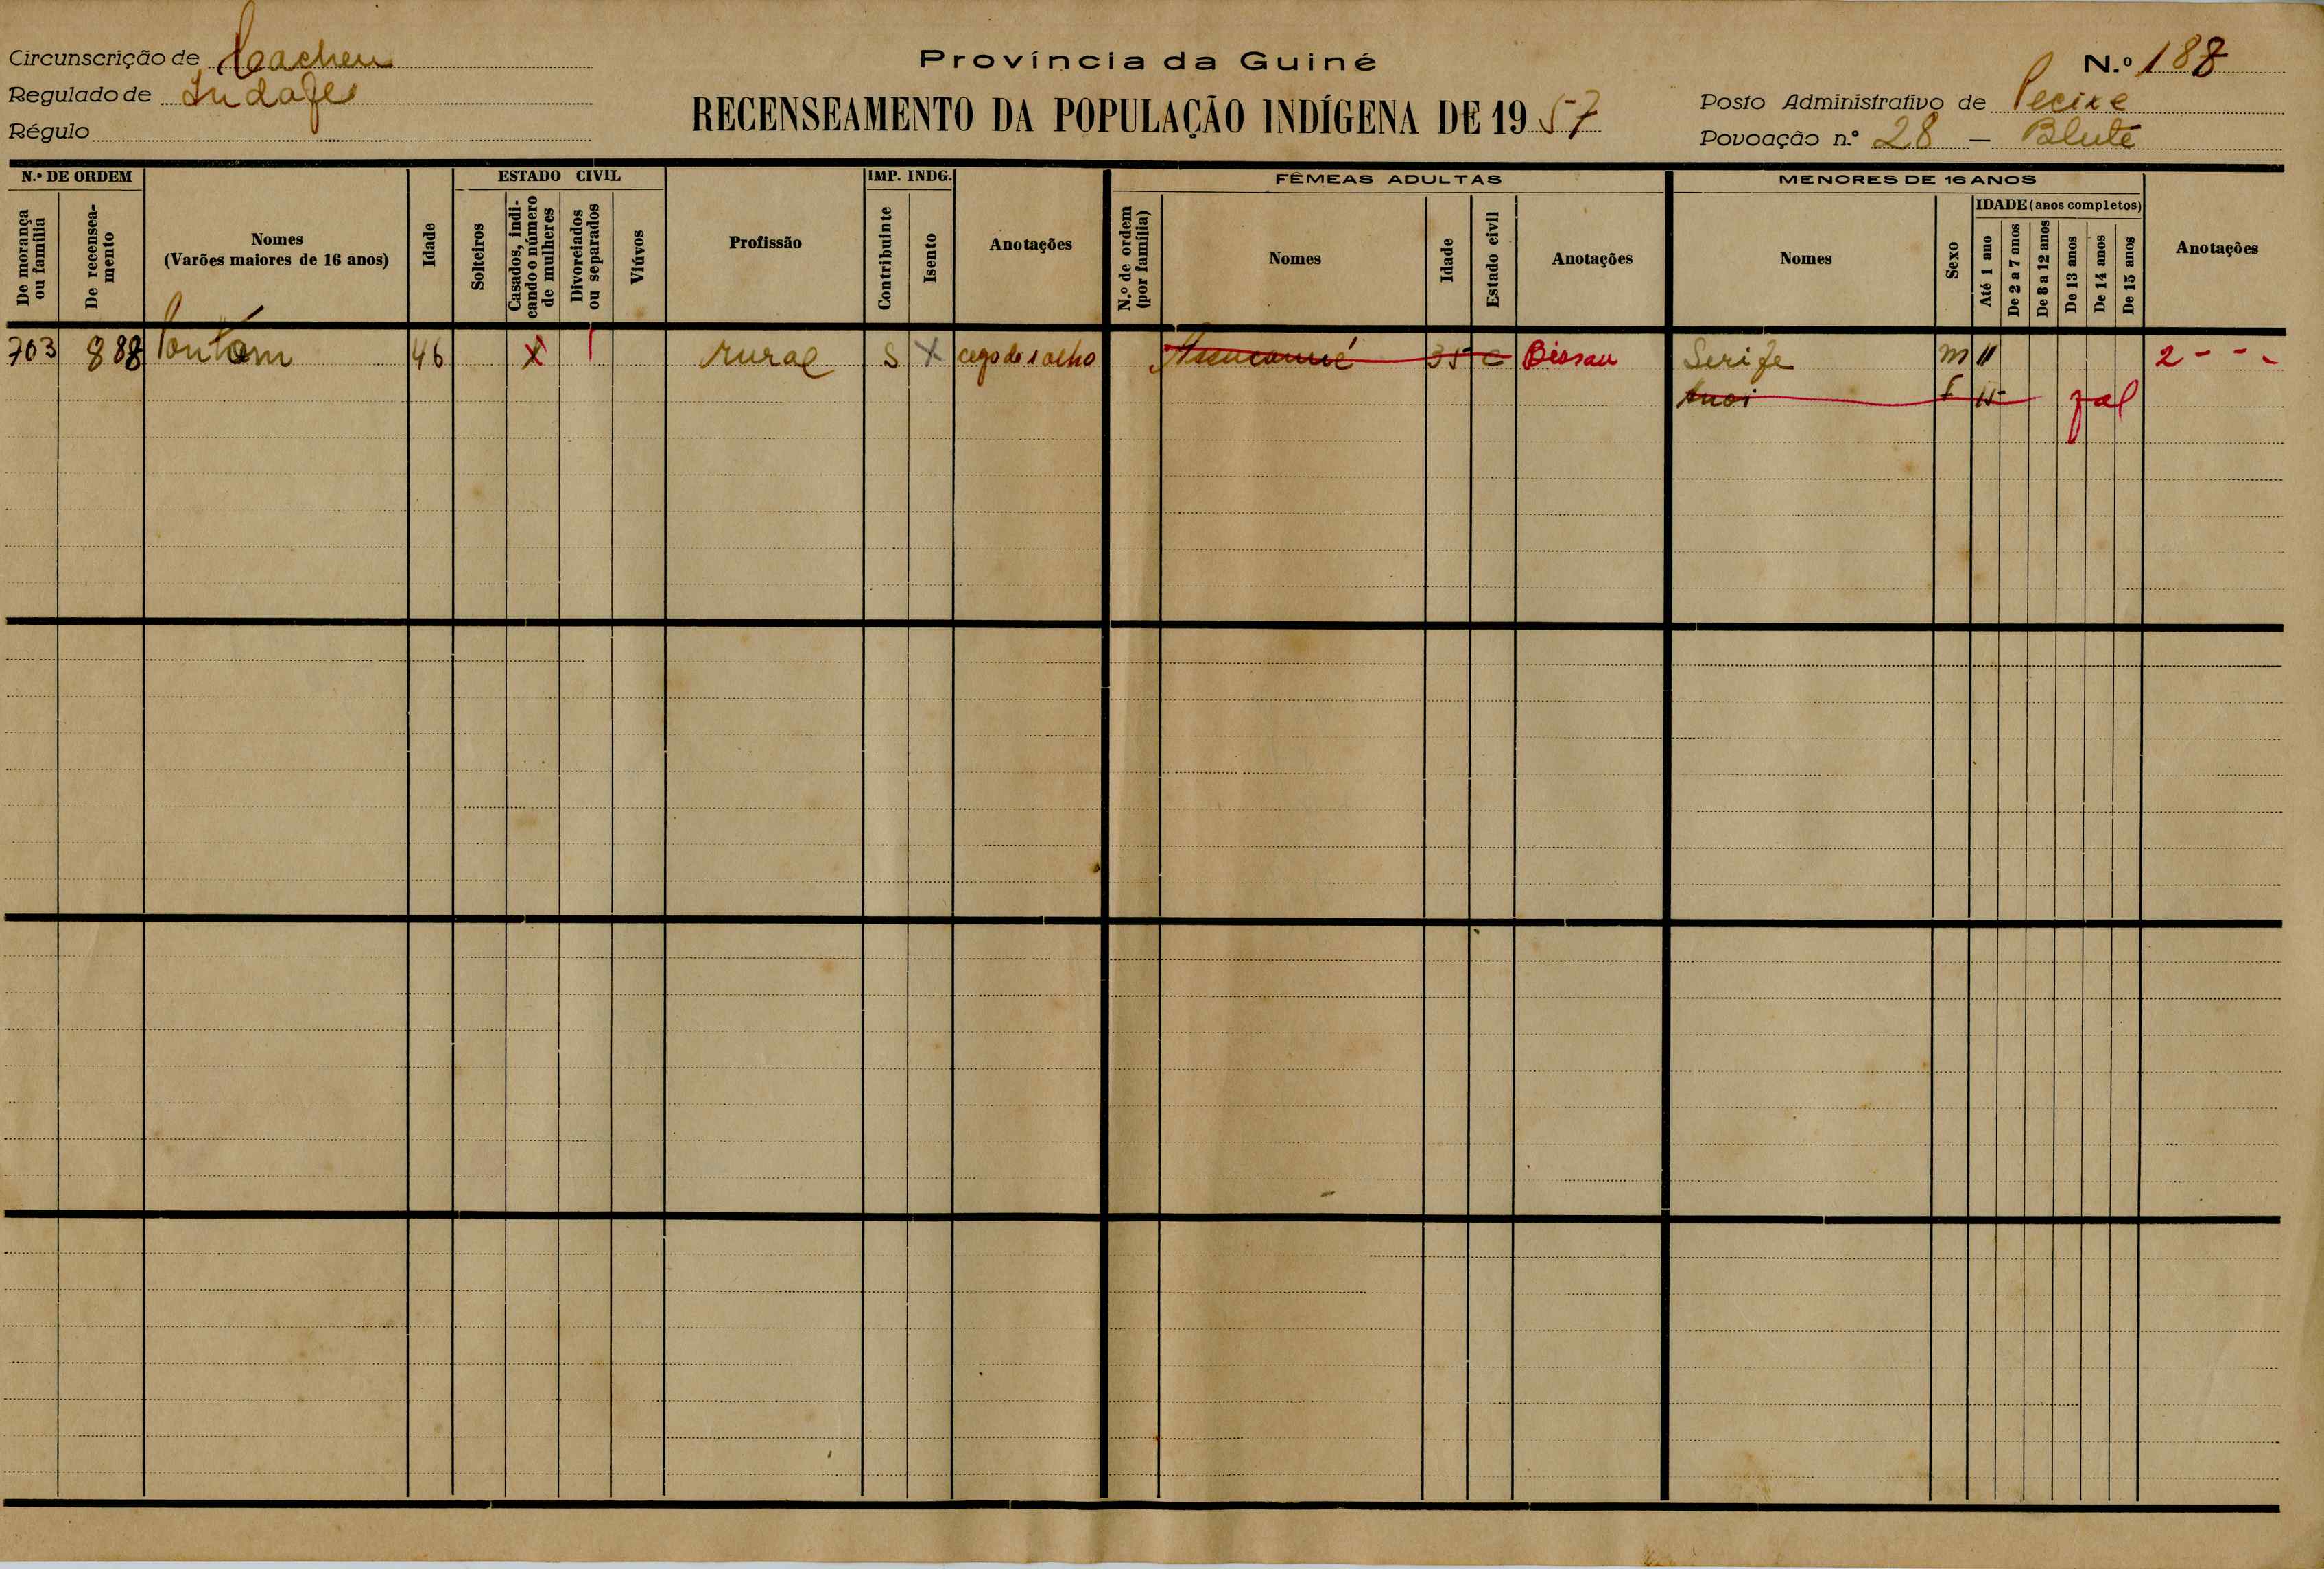 Circunscrição de Cacheu
Regulado de Indafe
Régulo
Província da Guiné
RECENSEAMENTO DA POPULAÇÃO INDÍGENA DE 1957
N.º 188
Posto Administrativo de Pecixe
Povoação n.º 28 — Blute
N.º DE ORDEM
De morança ou família
De recenseamento
Nomes
(Varões maiores de 16 anos)
Idade
ESTADO CIVIL
Solteiros
Casados, indicando o número de mulheres
Divorciados ou separados
Viúvos
Profissão
IMP. INDG.
Contribuinte
Isento
Anotações
FÊMEAS ADULTAS
N.º de ordem (por família)
Nomes
Idade
Estado civil
Anotações
MENORES DE 16 ANOS
Nomes
Sexo
IDADE (anos completos)
Até 1 ano
De 2 a 7 anos
De 8 a 12 anos
De 13 anos
De 14 anos
De 15 anos
Anotações
703 888 Pontom 46 X 1 rural S X cego de 1 olho 35 C Bissau Serife m 11 2 - - -
F fal